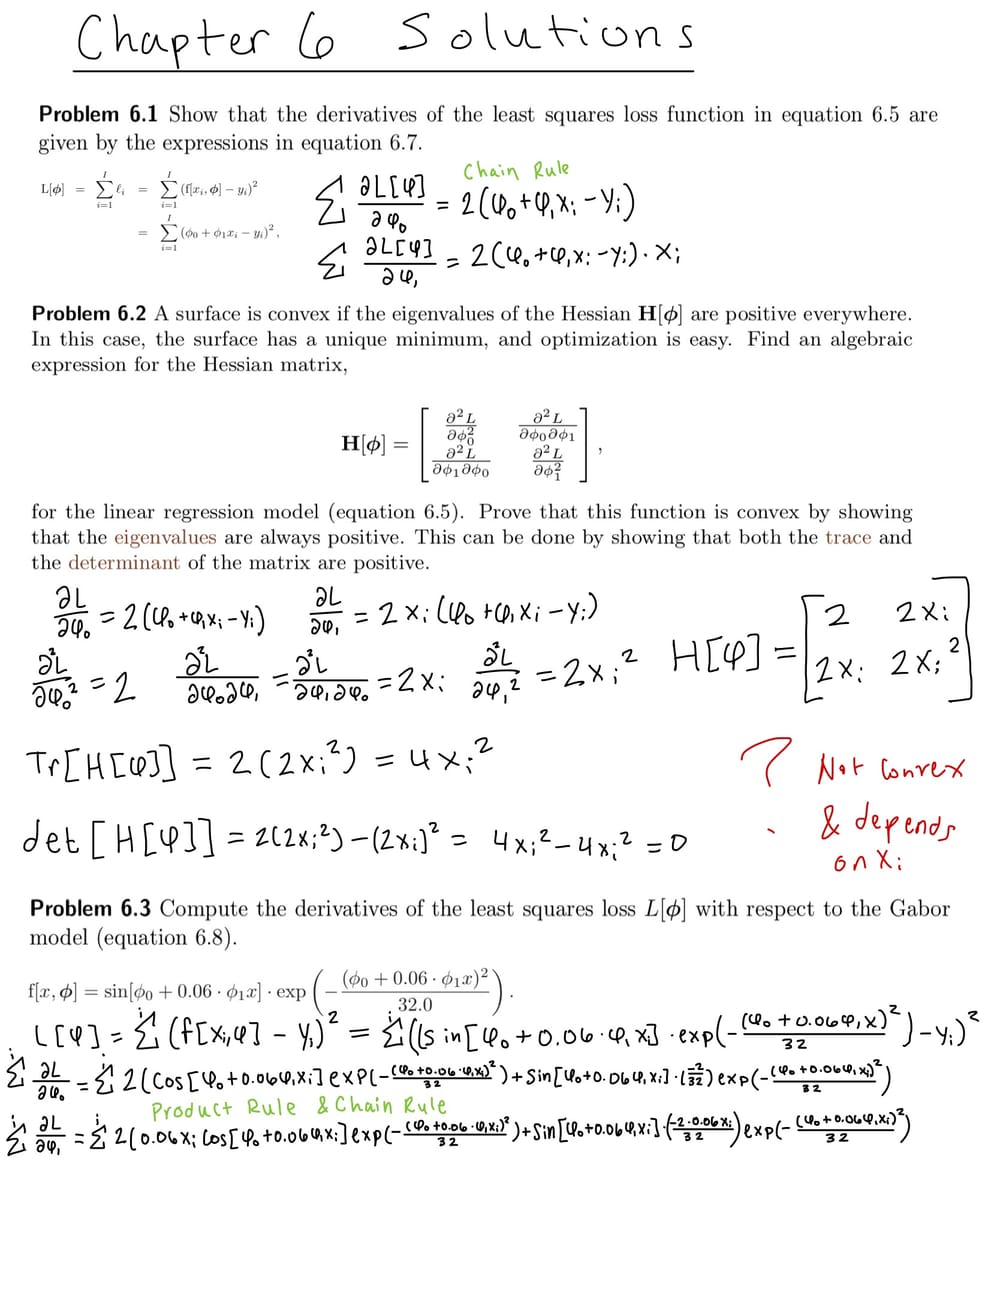 Chapter 6 Solutions
Problem 6.1 Show that the derivatives of the least squares loss function in equation 6.5 are
given by the expressions in equation 6.7.
L[ϕ] = ∑_{i=1}^{I} ℓ_i = ∑_{i=1}^{I} (f[x_i, ϕ] − y_i)²
= ∑_{i=1}^{I} (ϕ₀ + ϕ₁x_i − y_i)²,
Chain Rule
∑ ∂L[φ]/∂φ₀ = 2(φ₀+φ₁x_i −y_i)
∑ ∂L[φ]/∂φ₁ = 2(φ₀+φ₁x_i −y_i)·x_i
Problem 6.2 A surface is convex if the eigenvalues of the Hessian H[ϕ] are positive everywhere.
In this case, the surface has a unique minimum, and optimization is easy. Find an algebraic
expression for the Hessian matrix,
H[ϕ] = [ ∂²L/∂ϕ₀² ∂²L/∂ϕ₀∂ϕ₁
∂²L/∂ϕ₁∂ϕ₀ ∂²L/∂ϕ₁² ],
for the linear regression model (equation 6.5). Prove that this function is convex by showing
that the eigenvalues are always positive. This can be done by showing that both the trace and
the determinant of the matrix are positive.
∂L/∂φ₀ = 2(φ₀+φ₁x_i −y_i) ∂L/∂φ₁ = 2x_i(φ₀+φ₁x_i −y_i)
∂²L/∂φ₀² = 2 ∂²L/∂φ₀∂φ₁ = ∂²L/∂φ₁∂φ₀ = 2x_i ∂²L/∂φ₁² = 2x_i²
H[φ] = [ 2 2x_i
2x_i 2x_i² ]
Tr[H[φ]] = 2(2x_i²) = 4x_i²
det[H[φ]] = 2(2x_i²)−(2x_i)² = 4x_i²−4x_i² = 0
? Not Convex
& depends
on x_i
Problem 6.3 Compute the derivatives of the least squares loss L[ϕ] with respect to the Gabor
model (equation 6.8).
f[x, ϕ] = sin[ϕ₀ + 0.06 · ϕ₁x] · exp(−(ϕ₀ + 0.06 · ϕ₁x)²/32.0).
L[φ] = ∑^i (f[x_i,φ] − y_i)² = ∑^i((sin[φ₀+0.06·φ₁x_i]·exp(−(φ₀+0.06φ₁x)²/32)−y_i)²
∑^i ∂L/∂φ₀ = ∑^i 2(cos[φ₀+0.06φ₁x_i]exp(−(φ₀+0.06·φ₁x_i)²/32)+sin[φ₀+0.06φ₁x_i]·(−2/32)exp(−(φ₀+0.06φ₁x_i)²/32)
Product Rule & Chain Rule
∑^i ∂L/∂φ₁ = ∑^i 2(0.06x_i cos[φ₀+0.06φ₁x_i]exp(−(φ₀+0.06·φ₁x_i)²/32)+sin[φ₀+0.06φ₁x_i]·(−2·0.06x_i/32)exp(−(φ₀+0.06φ₁x_i)²/32)